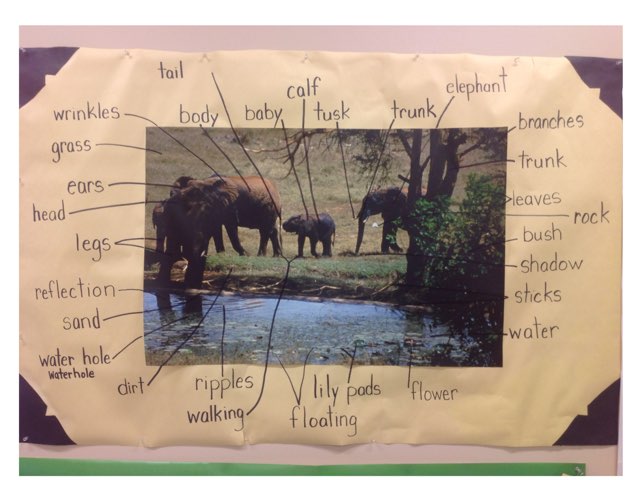 tail
calf
elephant
wrinkles
body
baby
tusk
trunk
branches
grass
trunk
ears
leaves
head
rock
legs
bush
shadow
reflection
sticks
sand
water
water hole
waterhole
dirt
ripples
lily pads
flower
walking
floating